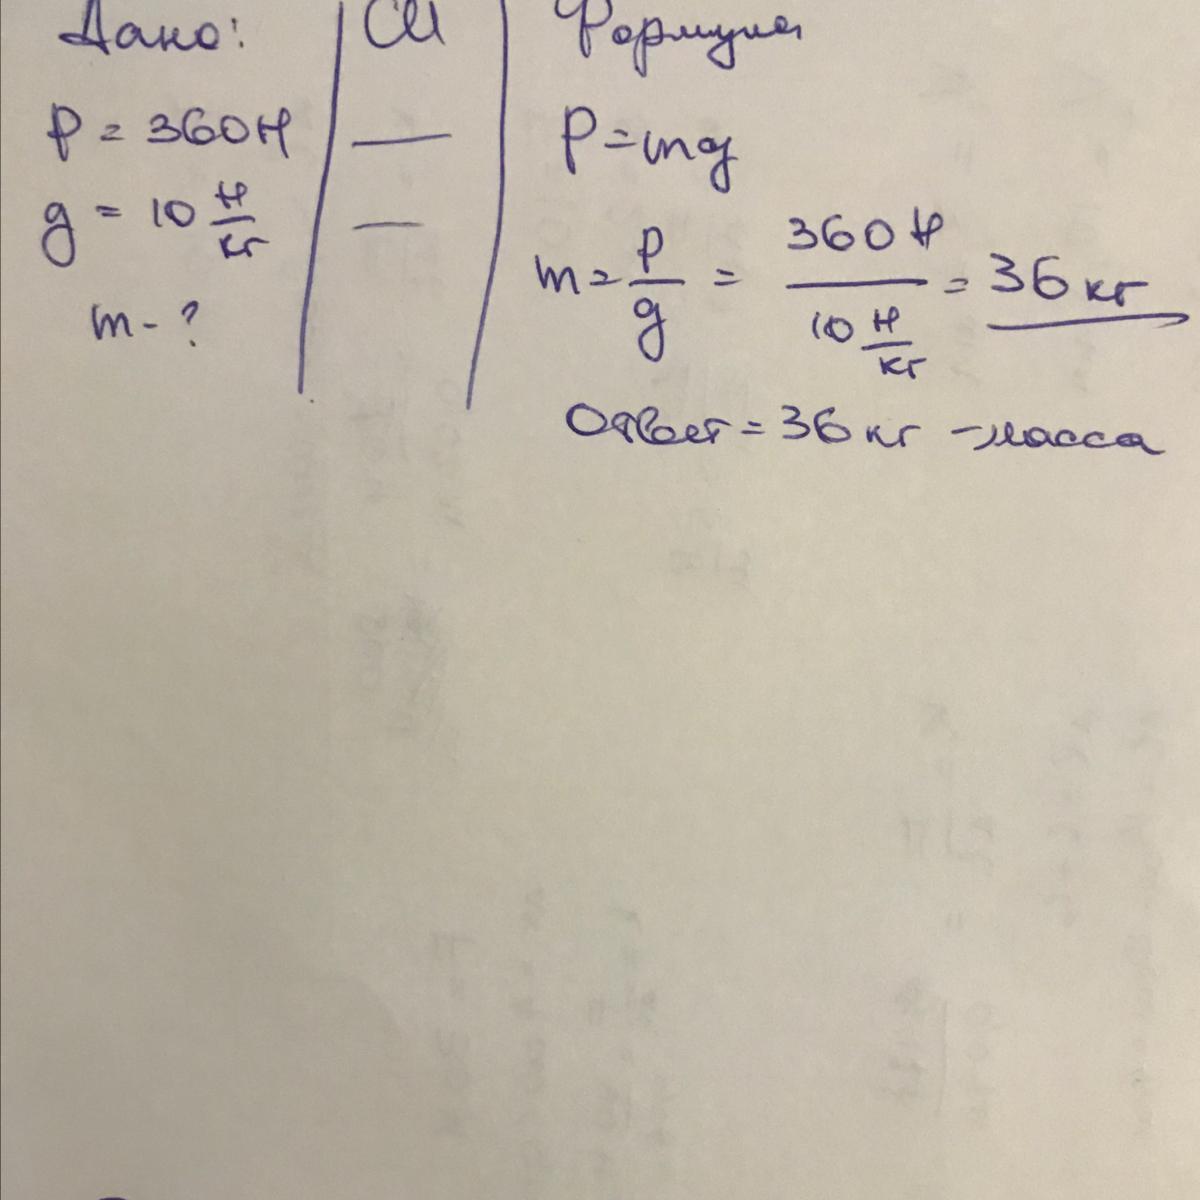 Дано:
P = 360Н
g = 10 Н/кг
m - ?
СИ
—
—
Формулы
P = mg
m = P/g = 360 Н / 10 Н/кг = 36 кг
Ответ = 36 кг - масса